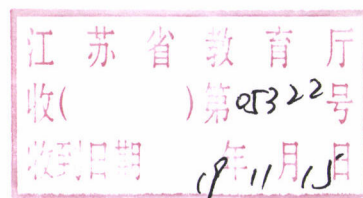 江苏省教育厅
收( )第05322号
收到日期 19年11月15日